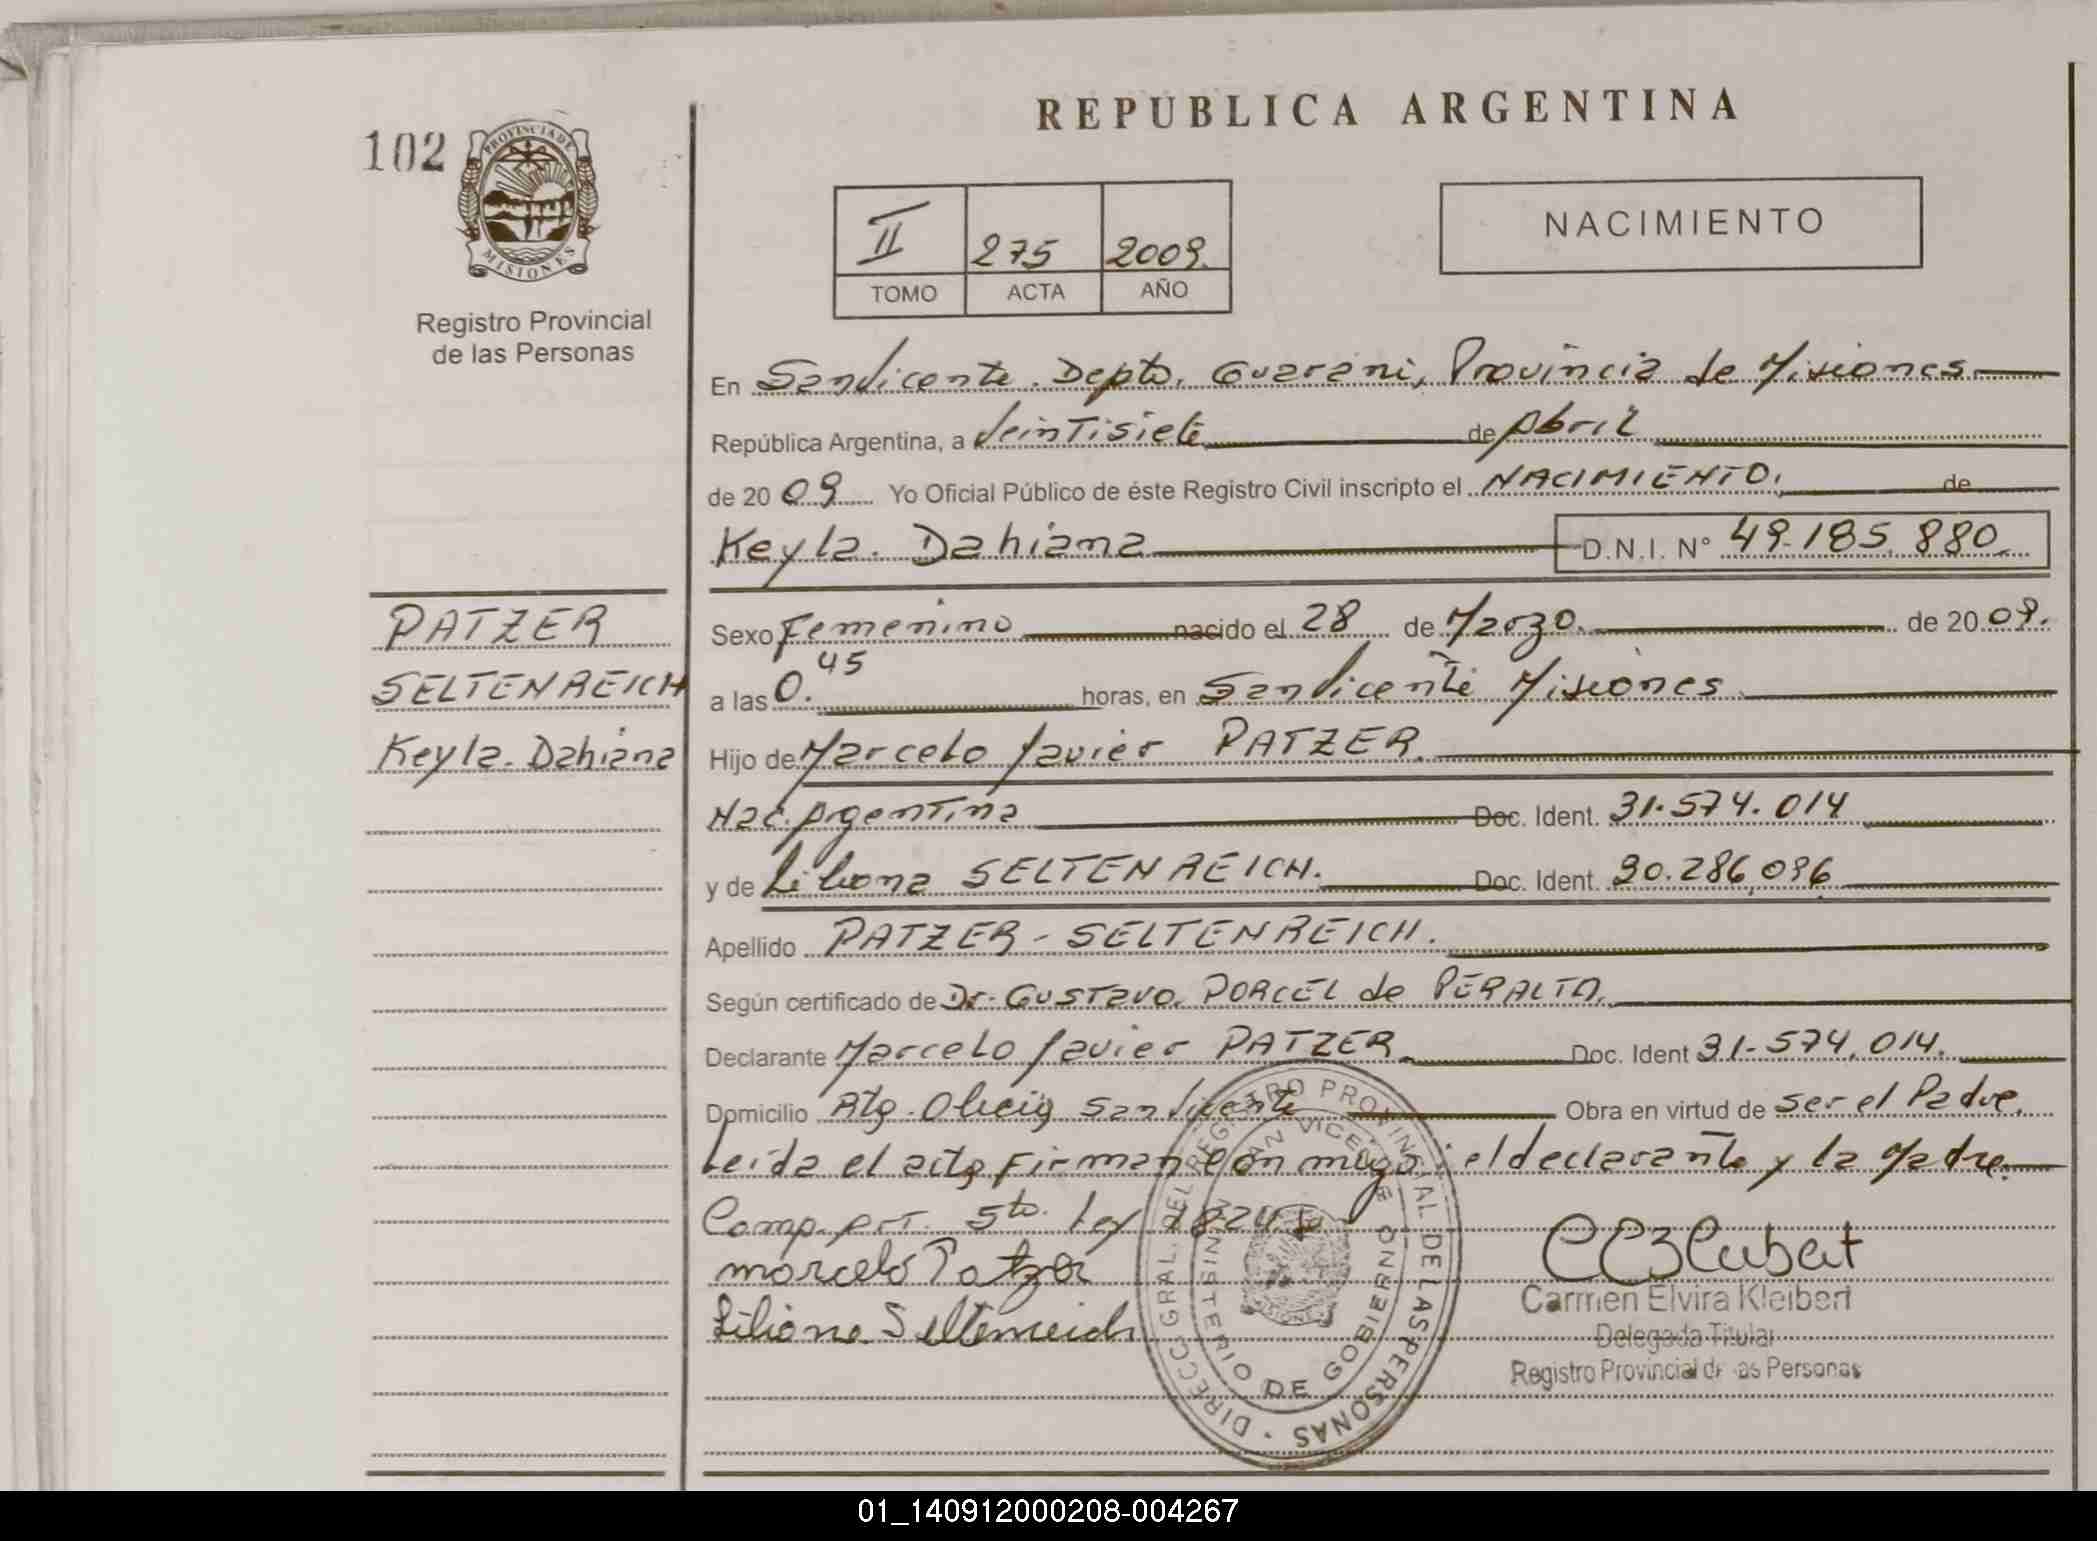 REPUBLICA ARGENTINA
102
PROVINCIA DE
MISIONES
Registro Provincial
de las Personas
II 275 2009.
TOMO ACTA AÑO
NACIMIENTO
En San Vicente. Depto. Guarani, Provincia de Misiones
República Argentina, a Veintisiete de Abril
de 2009 Yo Oficial Público de éste Registro Civil inscripto el NACIMIENTO. de
Keyla. Dahiana D.N.I. N° 49.185.880.
PATZER
SELTENREICH
Keyla. Dahiana
Sexo Femenino nacido el 28 de Marzo. de 2009.
a las 0.45 horas, en San Vicente Misiones
Hijo de Marcelo Javier PATZER.
Nac. Argentina Doc. Ident. 31.574.014
y de Liliana SELTENREICH. Doc. Ident. 30.286.096
Apellido PATZER - SELTENREICH.
Según certificado de Dr. Gustavo. PORCEL de PERALTA.
Declarante Marcelo Javier PATZER. Doc. Ident 31-574.014.
Domicilio San Vicente Obra en virtud de ser el Padre.
Leída el acta firman conmigo: el declarante y la Madre.
Comp. art. 5to. Ley
Marcelo Patzer
Liliana Seltenreich
Carmen Elvira Kleibert
Delegada Titular
Registro Provincial de las Personas
DIRECC. GRAL. DEL REGISTRO PROVINCIAL DE LAS PERSONAS
MINISTERIO DE GOBIERNO
SAN VICENTE
01_140912000208-004267